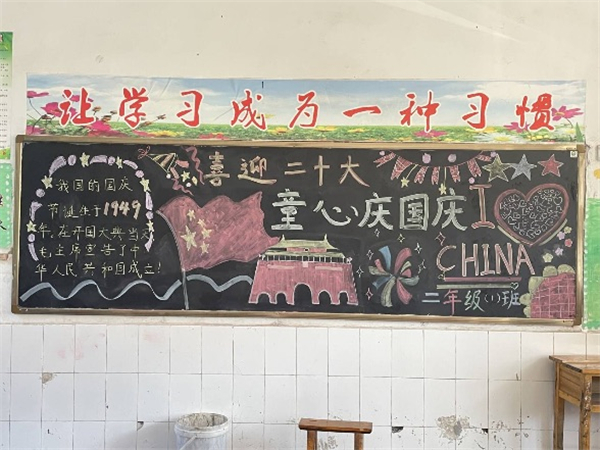 让学习成为一种习惯
喜迎二十大
童心庆国庆
我国的国庆
节诞生于1949
年,在开国大典当天
毛主席宣告了中
华人民共和国成立!
I
CHINA
二年级(1)班